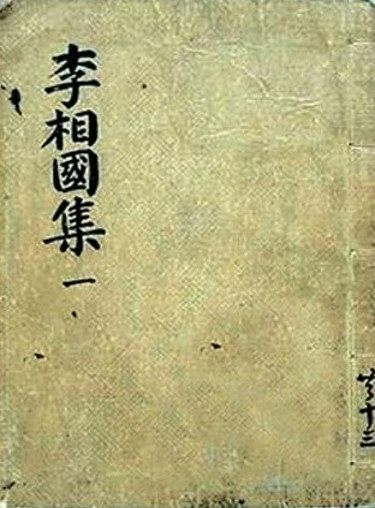 李相國集 一
共十三